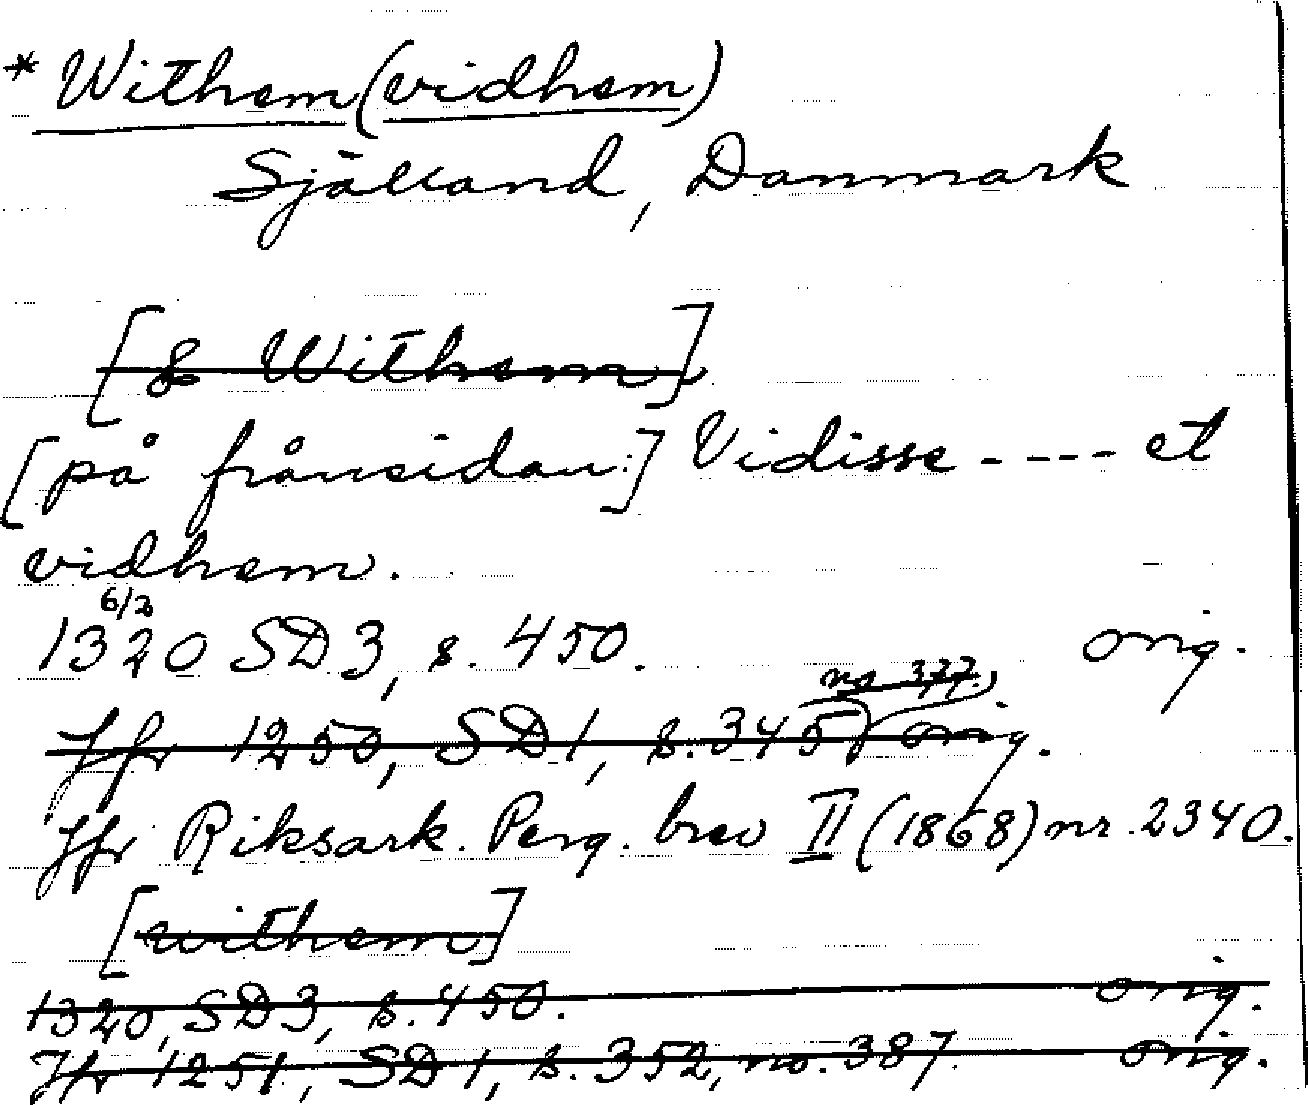 * Withem (vidhem)
Själland, Danmark
[& Withem]
[på frånsidan:] Vidisse - - - - et
vidhem.
6/2
1320 SD 3, s. 450. orig.
no 377.
Jfr 1250, SD 1, s. 345 orig.
Jfr Riksark. Perg. brev II (1868) nr. 2340.
[withem]
1320, SD 3, s. 450. orig.
Jfr 1251, SD 1, s. 352, no. 387 orig.